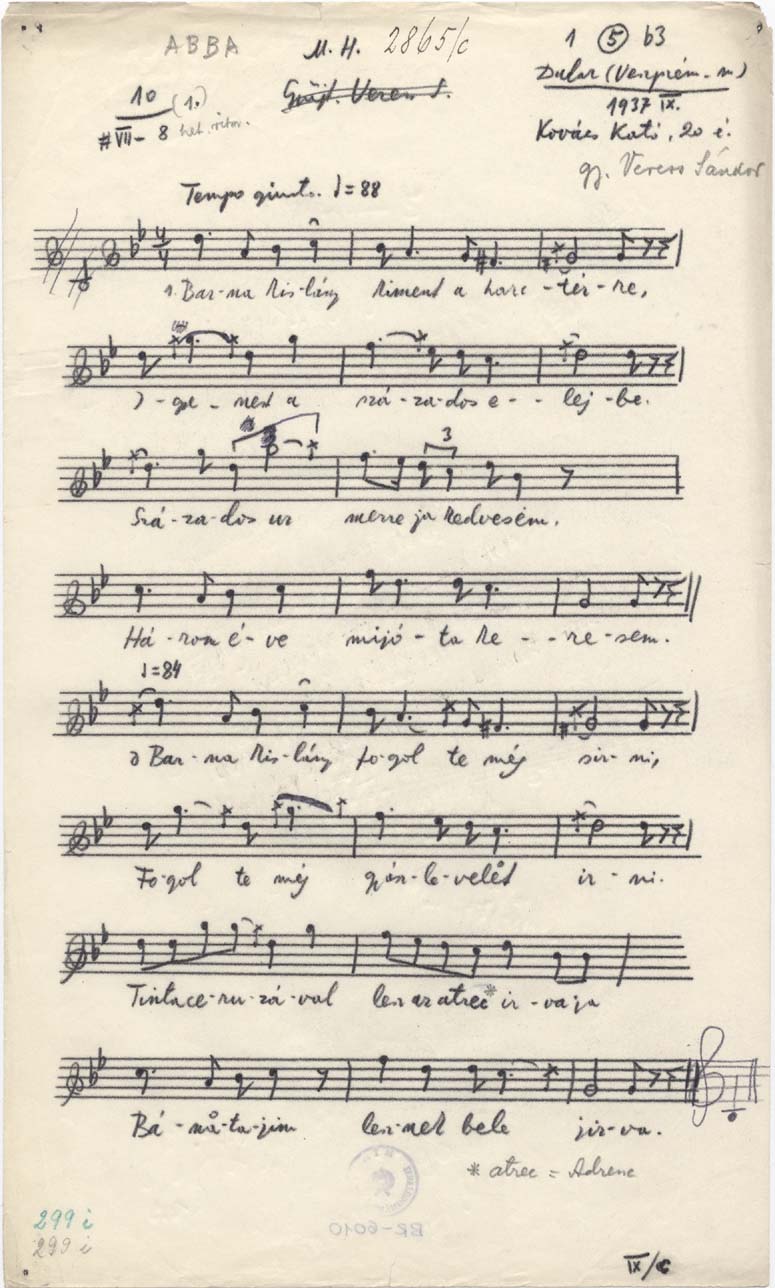 ABBA M. H. 2865/c 1 5 b3
Gyűjt. Veress S. Dudar (Veszprém. m)
10 (1.) 1937 IX.
#VII - 8 Kovács Kati, 20 é.
gy. Veress Sándor
Tempo giusto. ♩=88
1. Bar-na kis-lány kiment a harc-tér-re,
I-ge-nest a szá-za-dos e-lej-be.
Szá-za-dos ur merre ja kedvesém,
Há-rom é-ve mijó-ta ke-re-sem.
♩=84
2 Bar-na kis-lány fo-gol te még sir-ni,
Fo-gol te még gyász-le-velet ir-ni.
3
Tintace-ru-zá-val lesz az atrec* ir-va ja
Bá-na-ta-jim lesz-nek bele jir-va.
* atrec = Adresse
BR-6010
299 i
299 i
IX/c